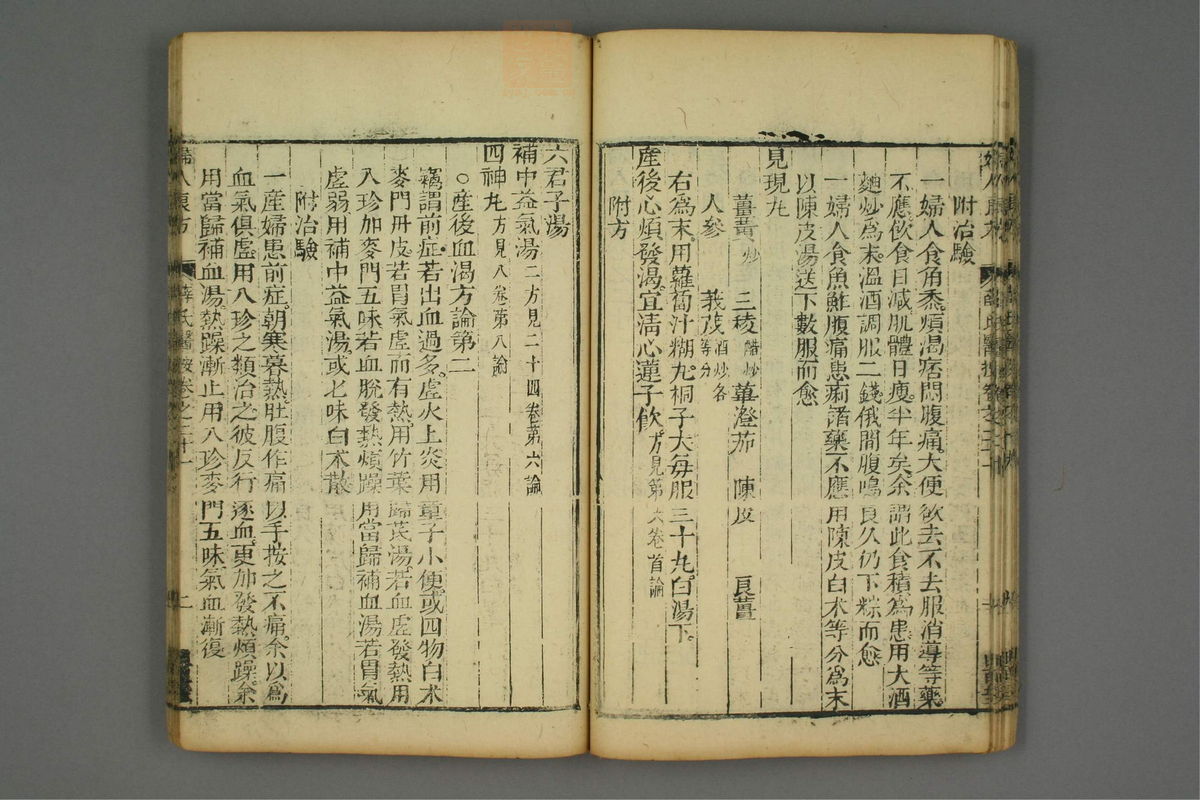 附治驗
一婦人食角黍煩渴痞悶腹痛大便欲去不去服消導等藥
不應飲食日減肌體日瘦半年矣余謂此食積爲患用大酒
麯炒爲末溫酒調服二錢俄間腹鳴良久仍下粽而愈
一婦人食魚鮓腹痛患痢諸藥不應用陳皮白朮等分爲末
以陳皮湯送下數服而愈
見晛丸
薑黃炒 三稜醋炒 蓽澄茄 陳皮 良薑
人參 莪茂酒炒各等分
右爲末用蘿蔔汁糊丸桐子大每服三十九白湯下
產後心煩發渴宜淸心蓮子飲方見第六卷首論
附方
六君子湯
補中益氣湯二方見二十四卷第六論
四神丸方見八卷第八論
○產後血渴方論第二
竊謂前症若出血過多虛火上炎用童子小便或四物白朮
麥門丹皮若胃氣虛而有熱用竹葉歸芪湯若血虛發熱用
八珍加麥門五味若血脫發熱煩躁用當歸補血湯若胃氣
虛弱用補中益氣湯或七味白朮散
附治驗
一產婦患前症朝寒暮熱肚腹作痛以手按之不痛余以爲
血氣俱虛用八珍之類治之彼反行逐血更加發熱煩躁余
用當歸補血湯熱躁漸止用八珍麥門五味氣血漸復
婦人良方 薛氏醫按卷之二十一 二